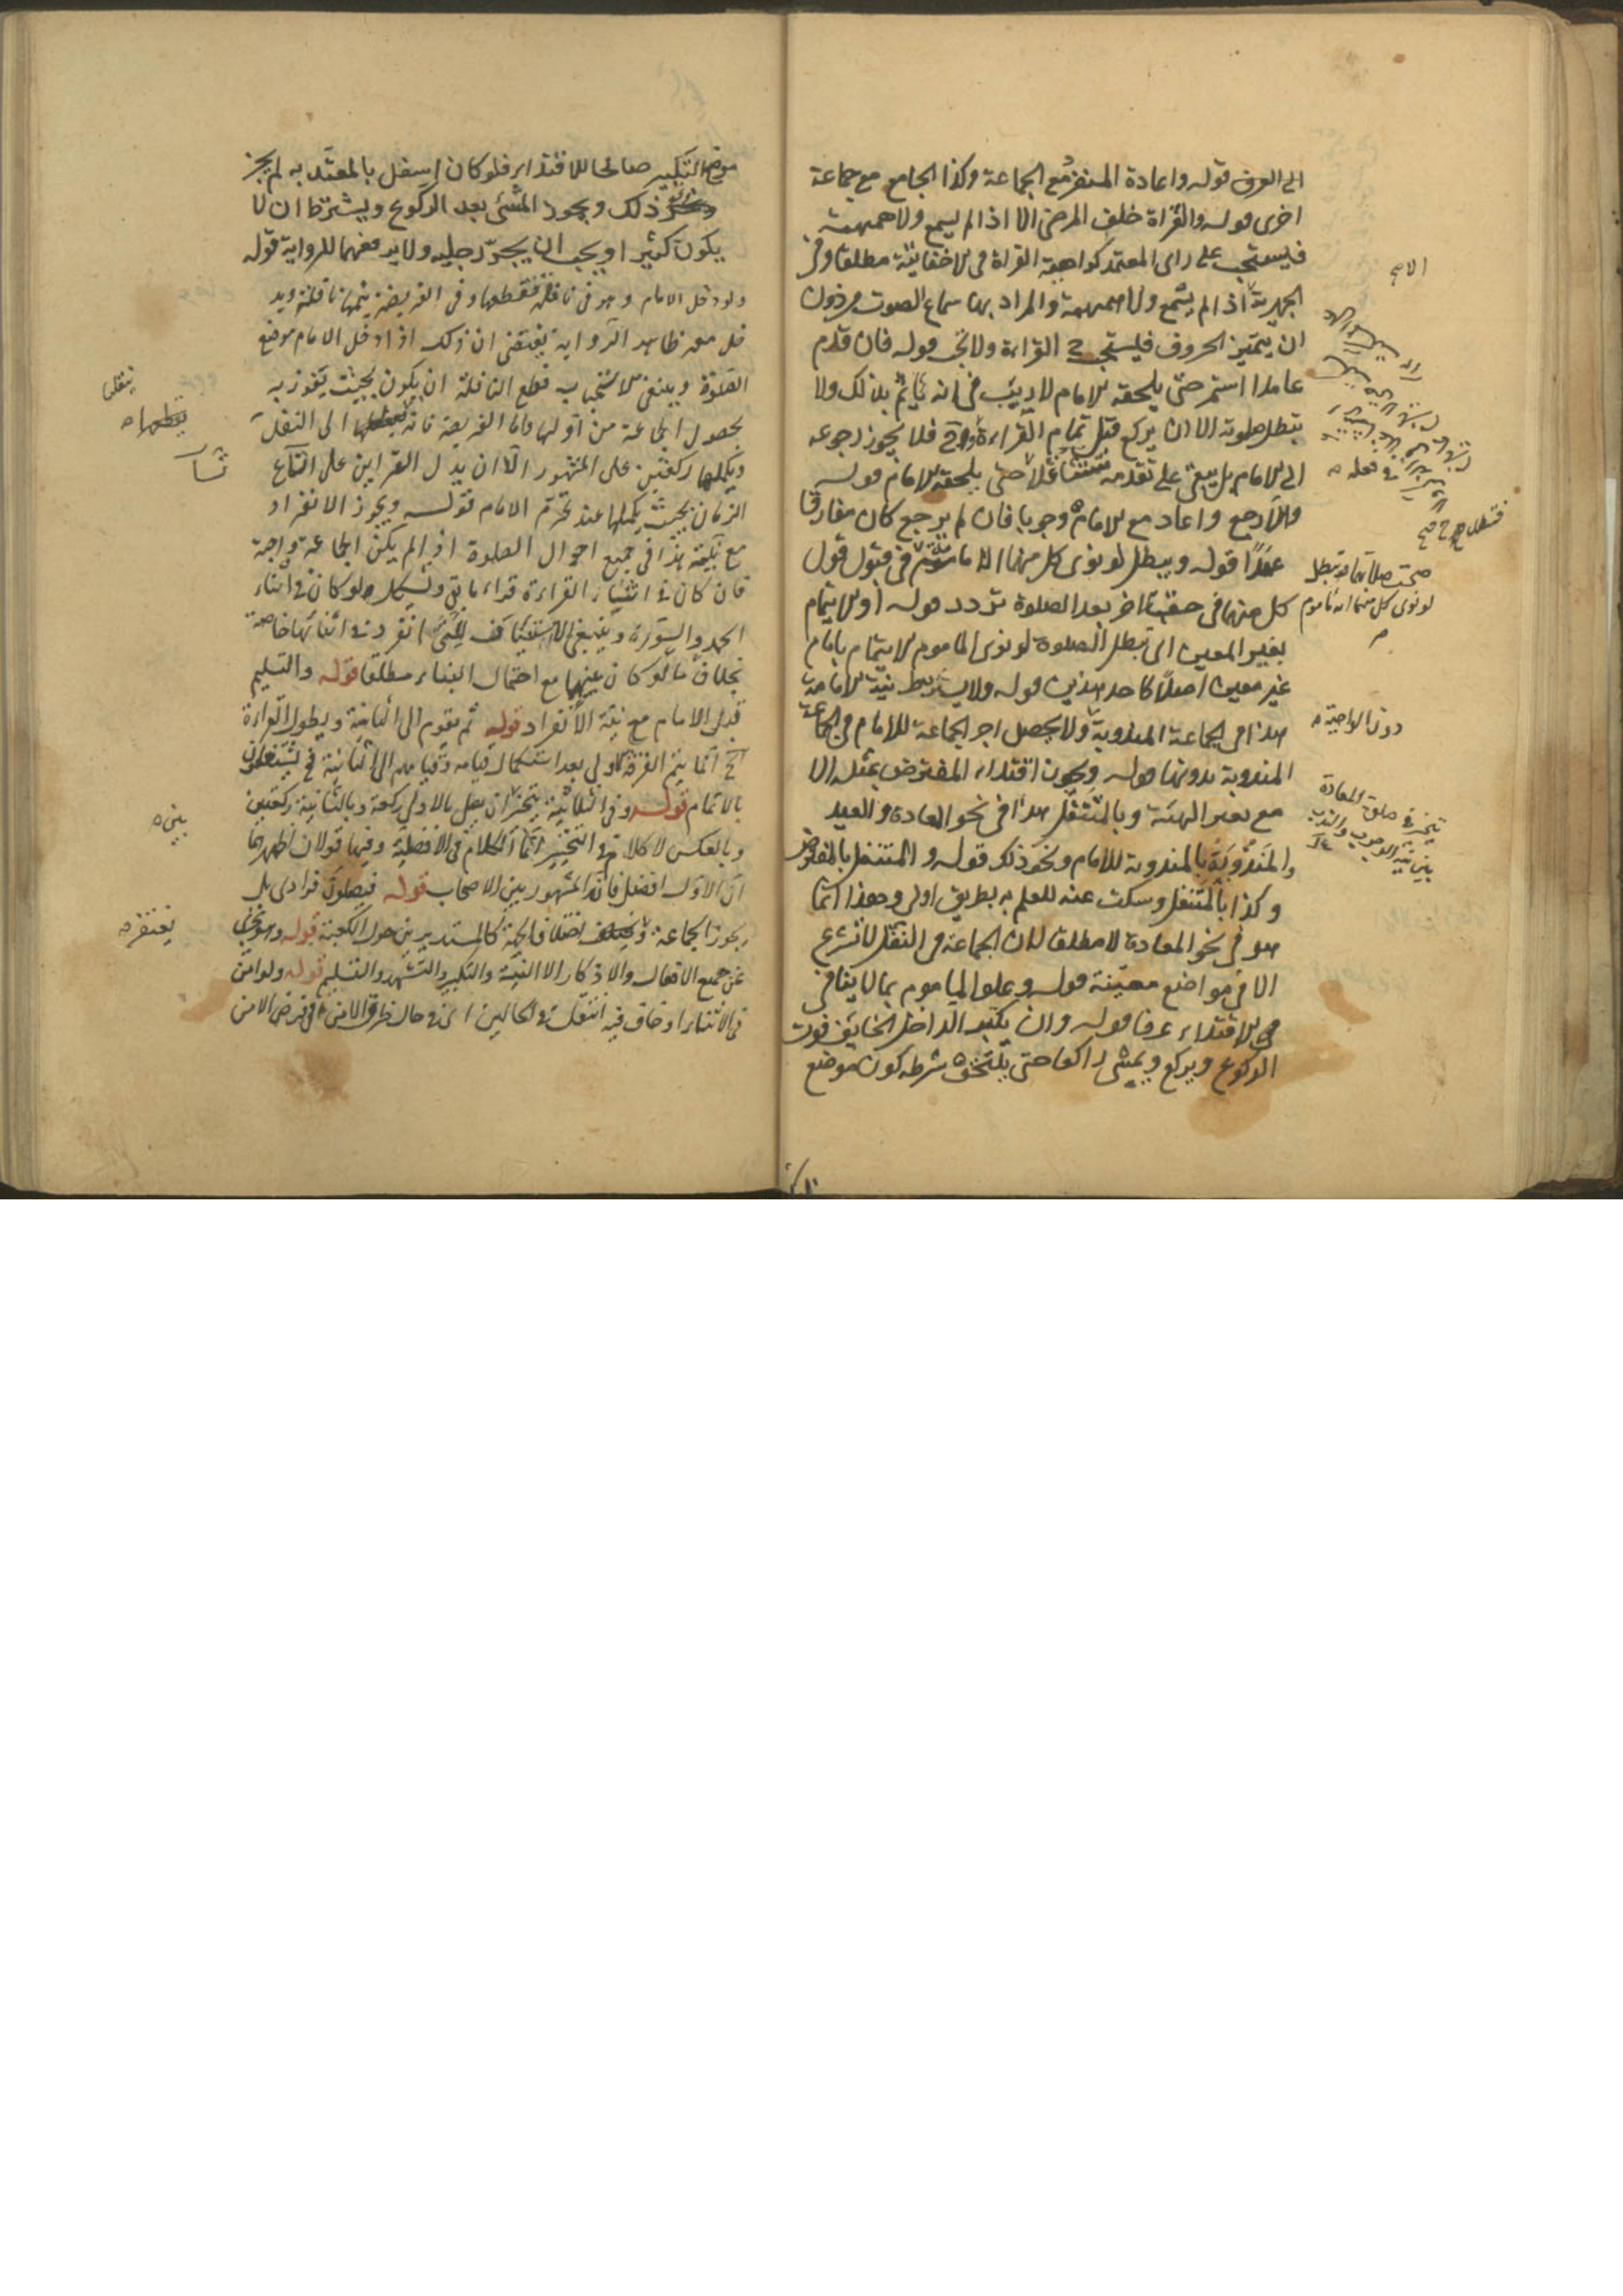 الى العرف قوله واعادة المنفرد مع الجماعة وكذا الجامع مع جماعة
اخرى قوله والقراة خلف المرضى الا اذا لم يسمع ولا همهمة
فيستحب على راى المعتمد كراهية القراة فى الاخفاتية مطلقا وفى
الجهرية اذا لم يسمع ولا همهمة والمراد بها سماع الصوت من دون
ان يتميز الحروف فيستحب ح القراءة ولا تجب قوله فان قدم
عامدا استمر حتى يلحقه الامام لا ريب فى انه ياثم بذلك ولا
تبطل صلوته الا ان يركع قبل تمام القراءة وح فلا يجوز رجوعه
الى الامام بل يبقى على تقدمه حتى يلحقه الامام قوله
والا رجع واعاد مع الامام وجوبا فان لم يرجع كان مفارقا
عمدا قوله ويبطل لو نوى كل منهما انه ماموم فى قبول قول
كل منهما فى حق الاخر بعد الصلوة تردد قوله او الايتمام
بغير المعين اى تبطل الصلوة لو نوى الماموم الايتمام بامام
غير معين اصلا كاحد هذين قوله ولا يشترط نية الامامة
هذا فى الجماعة المندوبة ولا يحصل اجر الجماعة للامام فى الجماعة
المندوبة بدونها قوله ويجوز اقتداء المفترض بمثله الا
مع تغير الهيئة وبالمتنفل هذا فى نحو المعادة والعيد
والمندوبة بالمندوبة للامام ونحو ذلك قوله والمتنفل بالمفترض
وكذا بالمتنفل وسكت عنه للعلم به بطريق اولى وهذا انما
هو فى نحو المعادة لا مطلقا لان الجماعة فى النفل لا تشرع
الا فى مواضع معينة قوله وعلو الماموم بما لا ينافى
فى الاقتداء عرفا قوله وان يكبر الداخل الخايف فوت
الركوع ويركع ويمشى راكعا حتى يلتحق شرطه كون موضع
فى فعله
صحت صلاتهما وتبطل
لو نوى كل منهما انه ماموم
دون الواجبة
يتخير فى صلوة المعادة
بين نية الوجوب والندب
موضع التكبير صالحا للاقتداء فلو كان اسفل بالمعتد به لم يجز
ذلك ويجوز المشى بعد الركوع ويشترط ان لا
يكون كثيرا ويجب ان يجر رجليه ولا يرفعهما للرواية قوله
ولو دخل الامام وهو فى نافلة فقطعها وفى الفريضة يتمها نافلة ويد
خل معه ظاهر الرواية يقتضى ان ذلك اذا دخل الامام موضع
الصلوة وينبغى لاستحباب قطع النافلة ان يكون بحيث يفوز به
بحصول الجماعة من اولها واما الفريضة فانه الى النفل
ويكملها ركعتين على المشهور الا ان يدل القراين على اتساع
الزمان بحيث يكملها عند تحرم الامام قوله ويجوز الانفراد
مع نيته هذا فى جميع احوال الصلوة اذا لم يكن الجماعة واجبة
فان كان فى اثناء القراءة قراء ما بقى ولو كان فى اثناء
الحمد والسورة وينبغى الاستيناف انفرد فى اثنائها خاصة
بخلاف ما لو كان بينهما مع احتمال البناء مطلقا قوله والتسليم
قبل الامام مع نية الانفراد قوله ثم يقوم الى الثانية ويطول القراءة
انما يتم الفرقة الاولى بعد استكمال قيامه وقيامهم الى الثانية فح يشتغلون
بالاتمام قوله وفى الثلاثية يتخير ان يصلى بالاولى ركعة وبالثانية ركعتين
وبالعكس لا كلام فى التخيير انما الكلام فى الافضلية وفيها قولان اظهرهما
ان الاول افضل فانه المشهور بين الاصحاب قوله فيصلون فرادى بل
يجوز الجماعة اختلاف الجهة كالمستديرين حول الكعبة قوله ويجزى
عن جميع الافعال والاذكار الا النية والتكبير والتشهد والتسليم قوله ولو امن
فى الاثناء او خاف فيه انتقل فى الحالين اى فى حال طرق الامن فى فرض الامن
ينقلها